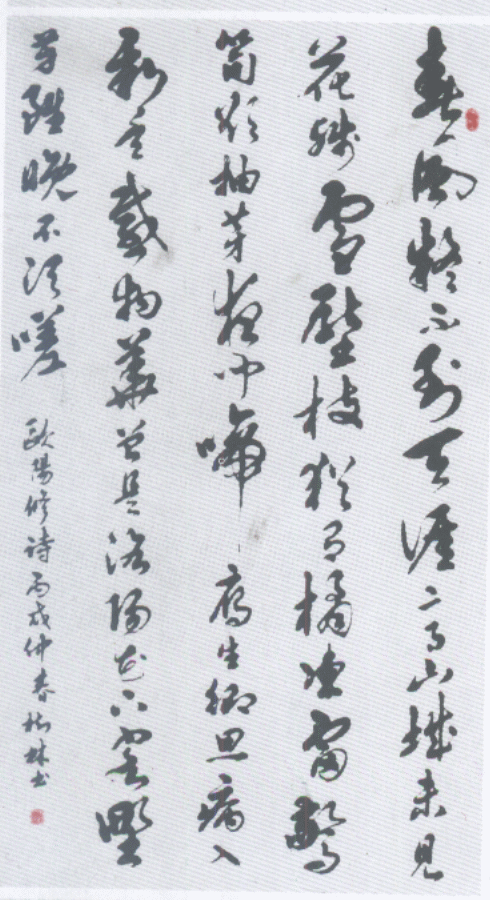 春風疑不到天涯二月山城未見
花殘雪壓枝猶有橘凍雷驚
筍欲抽芽夜聞啼雁生鄉思病入
新年感物華曾是洛陽花下客野
芳雖晚不須嗟
歐陽修詩丙戌仲春樹林书